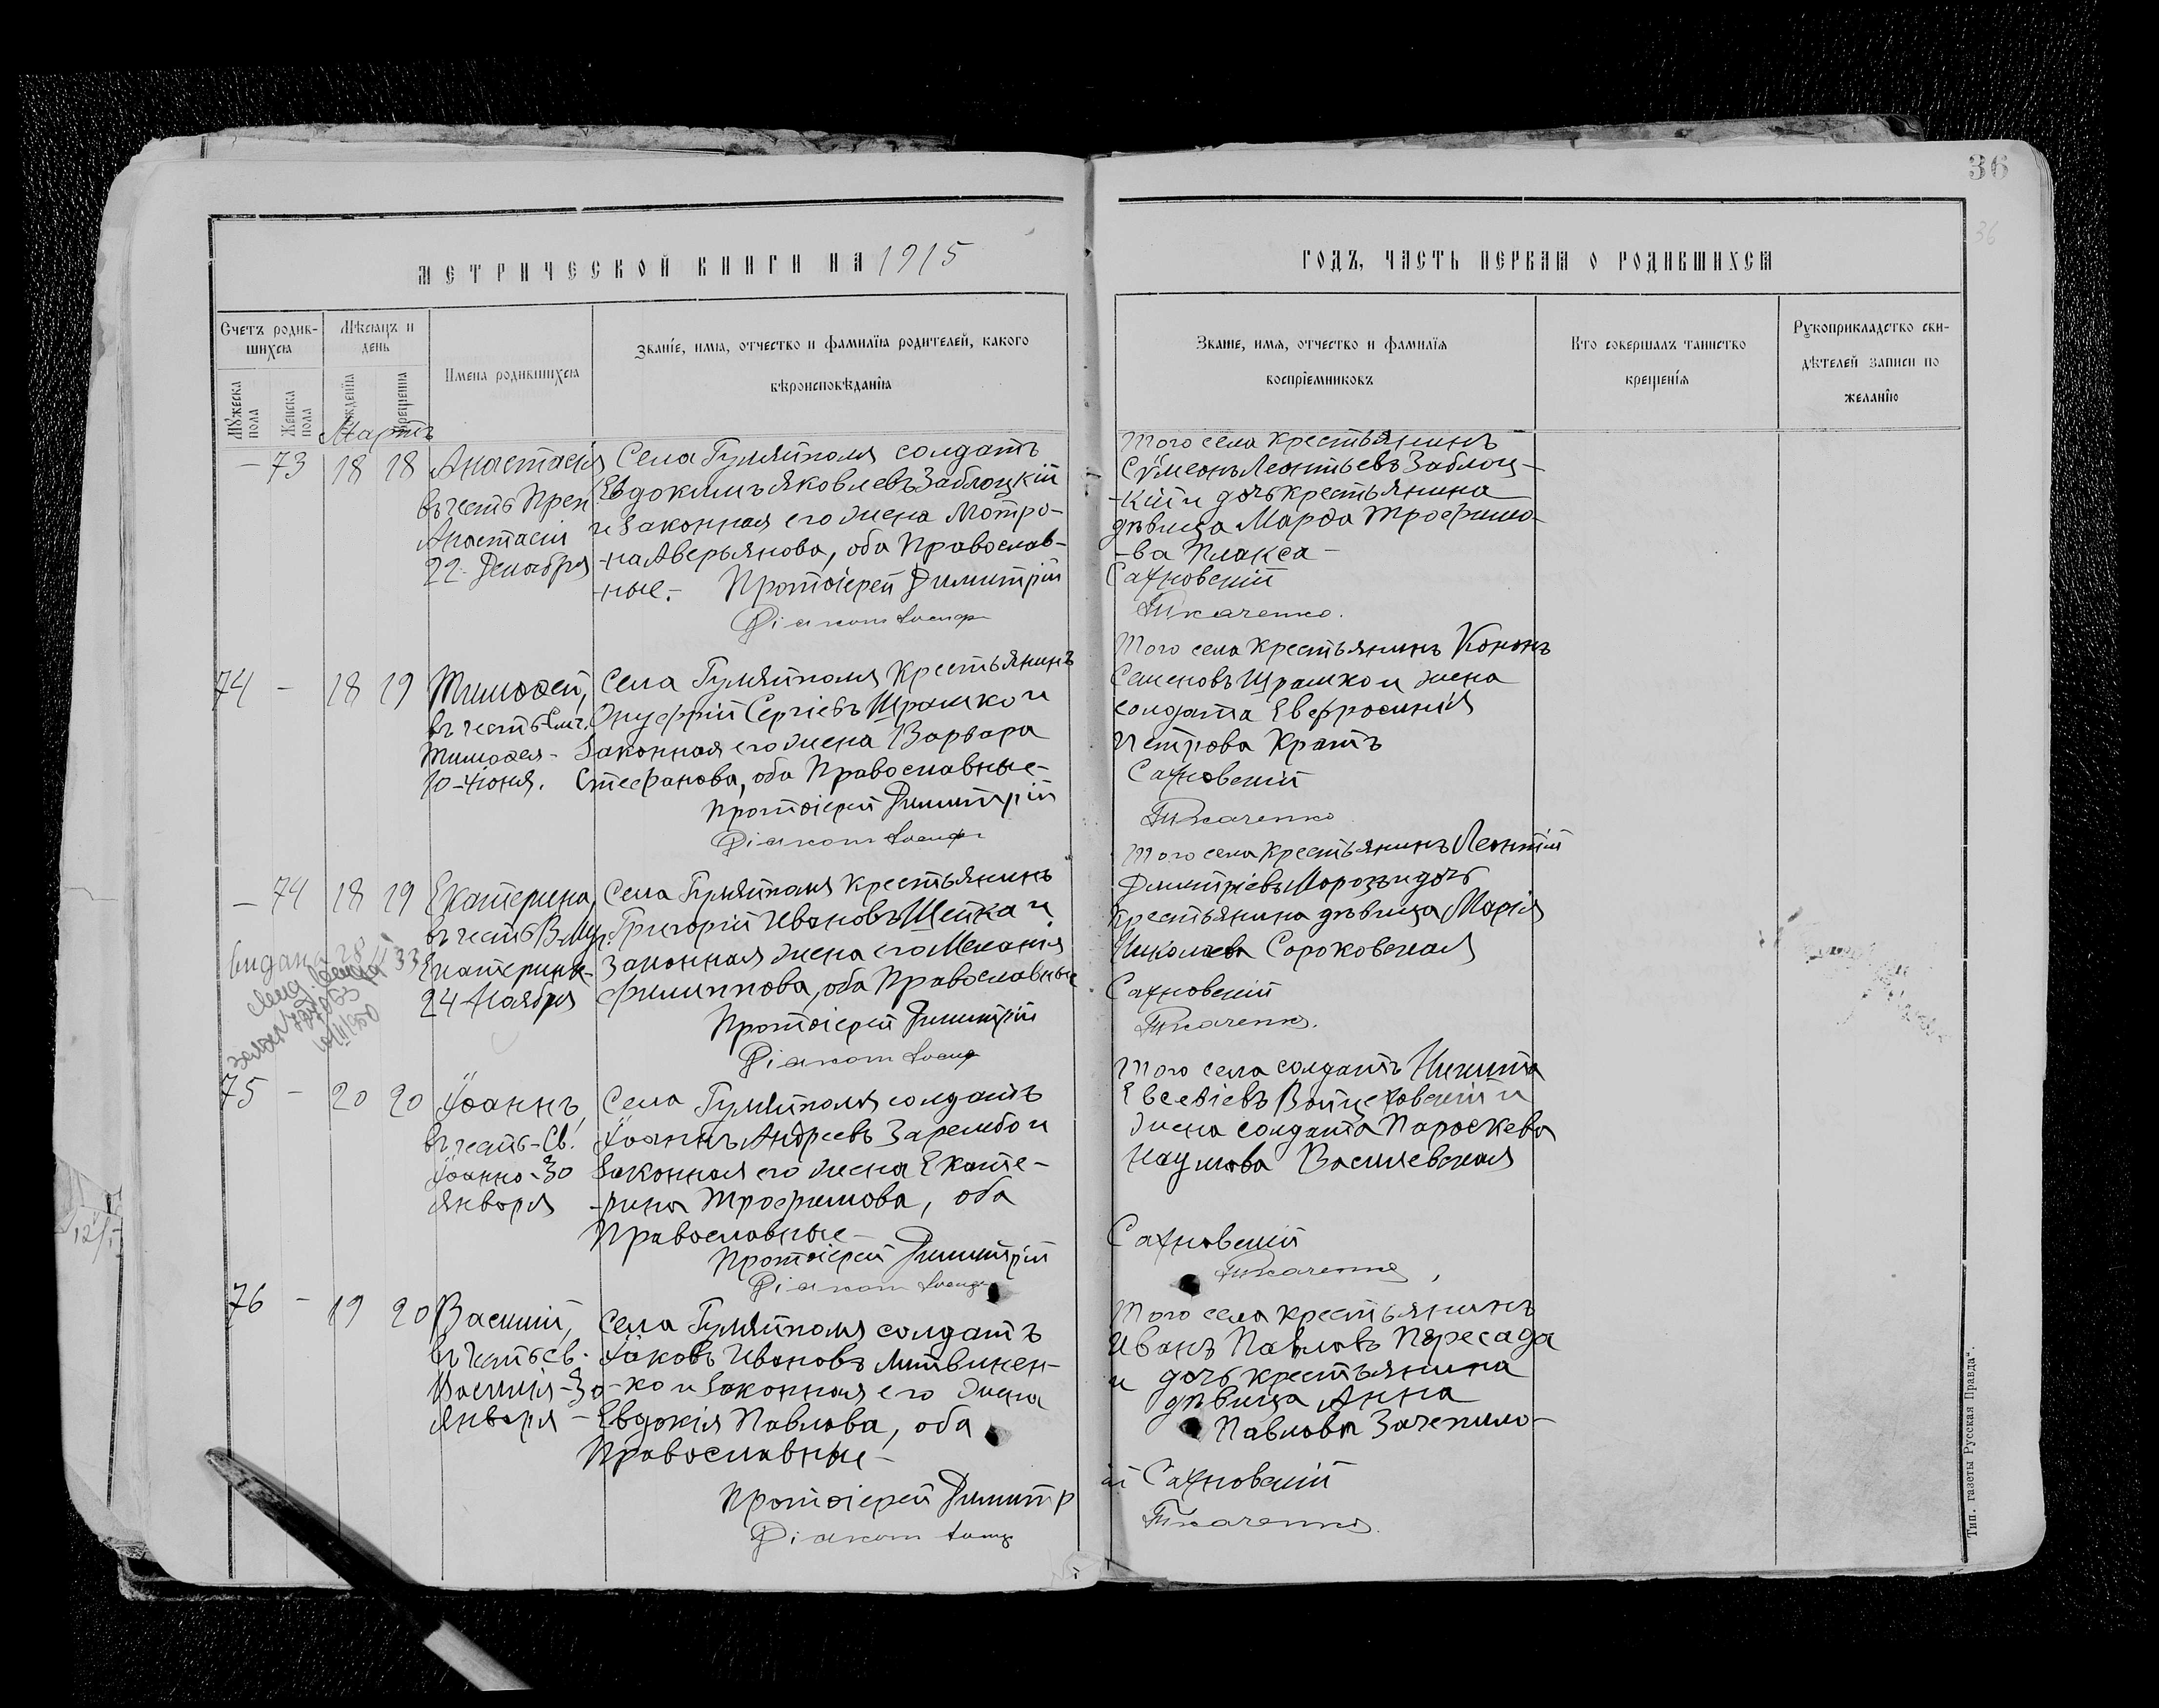 36
36
МЕТРИЧЕСКОЙ КНИГИ НА 1915
ГОДЪ, ЧАСТЬ ПЕРВАЯ О РОДИВШИХСЯ
Счетъ родив-
шихся
Мѣсяцъ и
день
Имена родившихся
Званіе, имя, отчество и фамилія родителей, какого
вѣроисповѣданія
Мужеска пола
Женска пола
Рожденія
Крещенія
Званіе, имя, отчество и фамилія
воспріемниковъ
Кто совершалъ таинство
крещенія
Рукоприкладство сви-
дѣтелей записи по
желанію
Мартъ
— 73 18 18 Анастасія
въ честь Преп.
Анастасіи
22 Декабря
Села Гуляйполя солдатъ
Евдокимъ Яковлевъ Заблоцкій
и законная его жена Матро-
-на Аверьянова, оба Православ-
-ные.- Протоіерей Димитрій
Діаконъ
того села крестьянинъ
Сѵмеонъ Леонтьевъ Заблоц-
-кій и дочь крестьянина
дѣвица Марѳа Трофимо-
-ва Плакса-
Сахновскій
Ткаченко.
74 — 18 19 Тимоѳей,
въ честь Свщ.
Тимоѳея-
10-Іюня.
Села Гуляйполя Крестьянинъ
Онуфрій Сергіевъ Шрамко и
законная его жена Варвара
Стефанова, оба Православные-
Протоіерей Димитрій
Діаконъ
Того села крестьянинъ Кононъ
Семеновъ Шрамко и жена
солдата Евфросинія
Петрова Кратъ
Сахновскій
Ткаченко
— 74 18 19 Екатерина,
въ честь В. Муч.
Екатерины-
24 Ноября
Села Гуляйполя крестьянинъ
Григорій Ивановъ Щетка и
законная жена его Меланія
Филиппова, оба Православные
Протоіерей Димитрій
Діаконъ
Того села крестьянинъ Леонтій
Димитріевъ Морозъ и дочь
крестьянина дѣвица Марія
Николаева Сороковская
Сахновскій
Ткаченко.
видана
75 — 20 20 Іоаннъ,
въ честь-Св.
Іоанна-30
Января
Села Гуляйполя солдатъ
Іоаннъ Андреевъ Зарембо и
законная его жена Екате-
-рина Трофимова, оба
Православные-
Протоіерей Димитрій
Діаконъ
Того села солдатъ Никита
Евсевіевъ Войцеховскій и
жена солдата Параскева
Наумова Василевская
Сахновскій
Ткаченко,
76 — 19 20 Василій,
въ честь св.
Василія-30
Января-
Села Гуляйполя солдатъ
Іаковъ Ивановъ Литвинен-
-ко и законная его жена
Евдокія Павлова, оба
Православные-
Протоіерей Димитр
Діаконъ
Того села крестьянинъ
Иванъ Павловъ Пересада
и дочь крестьянина
дѣвица Анна
Павлова Зачепило-
ій Сахновскій
Ткаченко.
Тип. газеты Русская Правда".